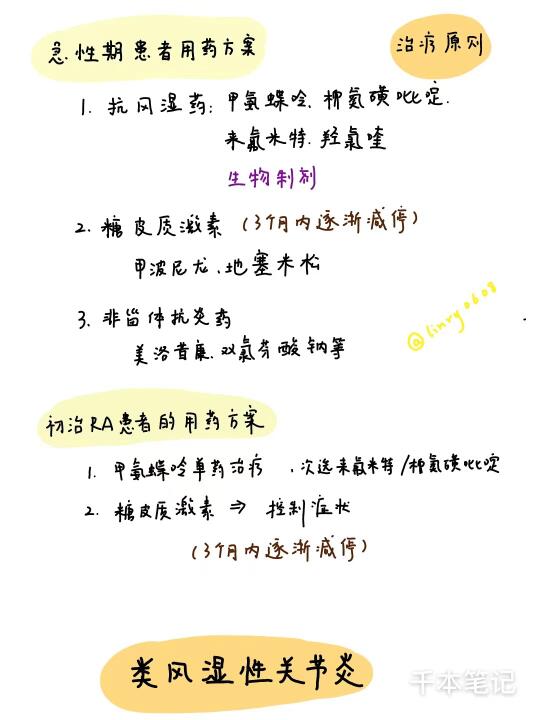 急性期患者用药方案
治疗原则
1. 抗风湿药：甲氨蝶呤、柳氮磺吡啶.
来氟米特.羟氯喹
生物制剂
2. 糖皮质激素（3个月内逐渐减停）
甲泼尼龙、地塞米松
3. 非甾体抗炎药
美洛昔康、双氯芬酸钠等
@linry0608
初治RA患者的用药方案
1. 甲氨蝶呤单药治疗、次选来氟米特/柳氮磺吡啶
2. 糖皮质激素 ⇒ 控制症状
（3个月内逐渐减停）
类风湿性关节炎
千本笔记